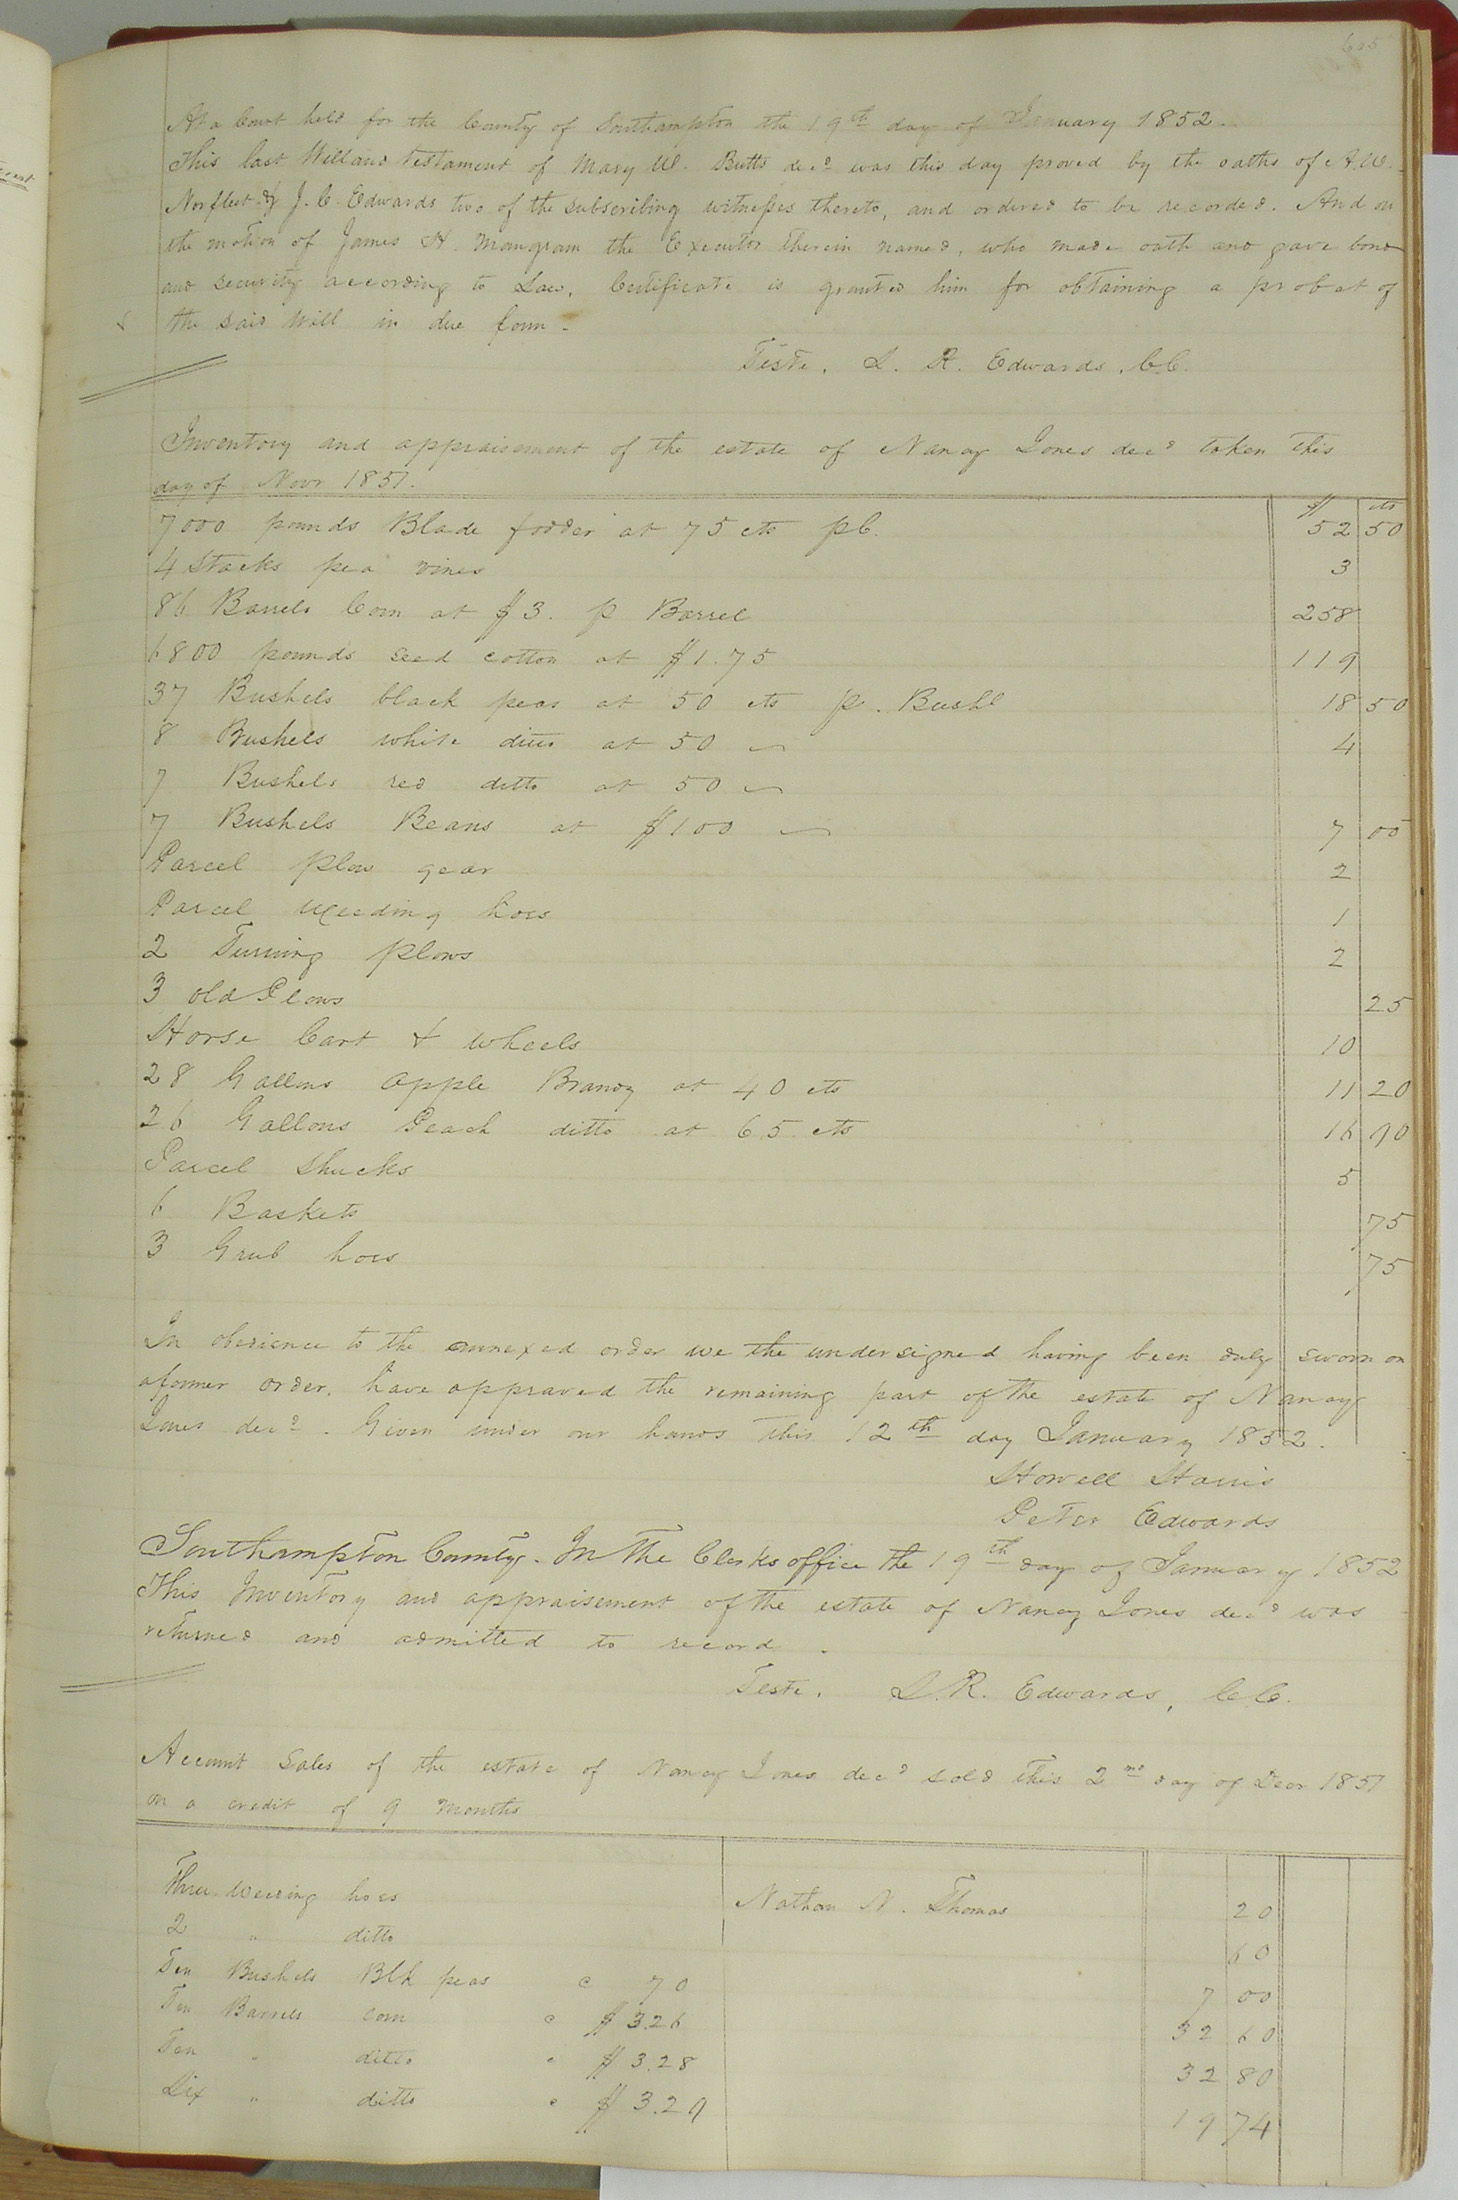 605
At a Court held for the County of Southampton the 19th day of January 1852.
This last Will and Testament of Mary W. Butts decd was this day proved by the oaths of A.W.
Norfleet & J. C. Edwards two of the subscribing witnesses thereto, and ordered to be recorded. And on
the motion of James H. Mangram the Executor therein named, who made oath and gave bond
and security according to Law, Certificate is granted him for obtaining a probat of
the said Will in due form.
Teste, L. R. Edwards, C.C.
Inventory and appraisement of the estate of Nancy Jones decd taken this
day of Novr 1851.
$ cts
7000 pounds Blade fodder at 75 cts pC. 52 50
4 Stacks pea vines 3
86 Barrels Corn at $3. p Barrel 258
6800 pounds seed cotton at $1.75 119
37 Bushels black peas at 50 cts p. Bushl 18 50
8 Bushels white ditto at 50 4
7 Bushels red ditto at 50
7 Bushels Beans at $100 7 00
Parcel plow gear 2
Parcel Weeding hoes 1
2 Turning plows 2
3 old Plows 25
Horse Cart & wheels 10
28 Gallons apple Brandy at 40 cts 11 20
26 Gallons Peach ditto at 65 cts 16 90
Parcel Shucks 5
6 Baskets 75
3 Grub hoes 75
In obedience to the annexed order we the undersigned having been duly sworn on
a former order, have appraved the remaining part of the estate of Nancy
Jones decd. Given under our hands this 12th day January 1852.
Howell Harris
Peter Edwards
Southampton County. In the Clerks office the 19th day of January 1852
This Inventory and appraisement of the estate of Nancy Jones decd was
returned and admitted to record.
Teste, L. R. Edwards, C.C.
Account Sales of the estate of Nancy Jones decd sold this 2nd day of Decr 1851
on a credit of 9 Months
Three Weeding hoes Nathan N. Thomas 20
2 " ditto 60
Ten Bushels Blk peas c 70 7 00
Ten Barrels corn c $3.26 32 60
Ten " ditto " $3.28 32 80
Six " ditto c $3.29 19 74